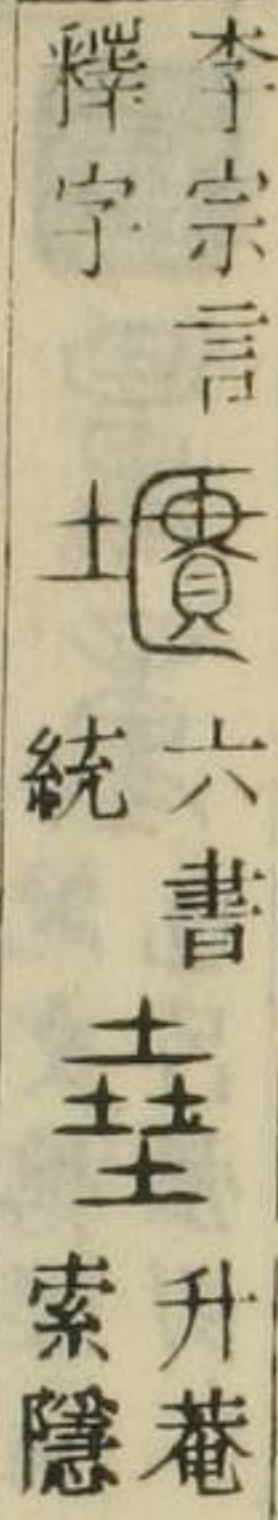 李宗言
釋字
六書
統
升菴
索隱